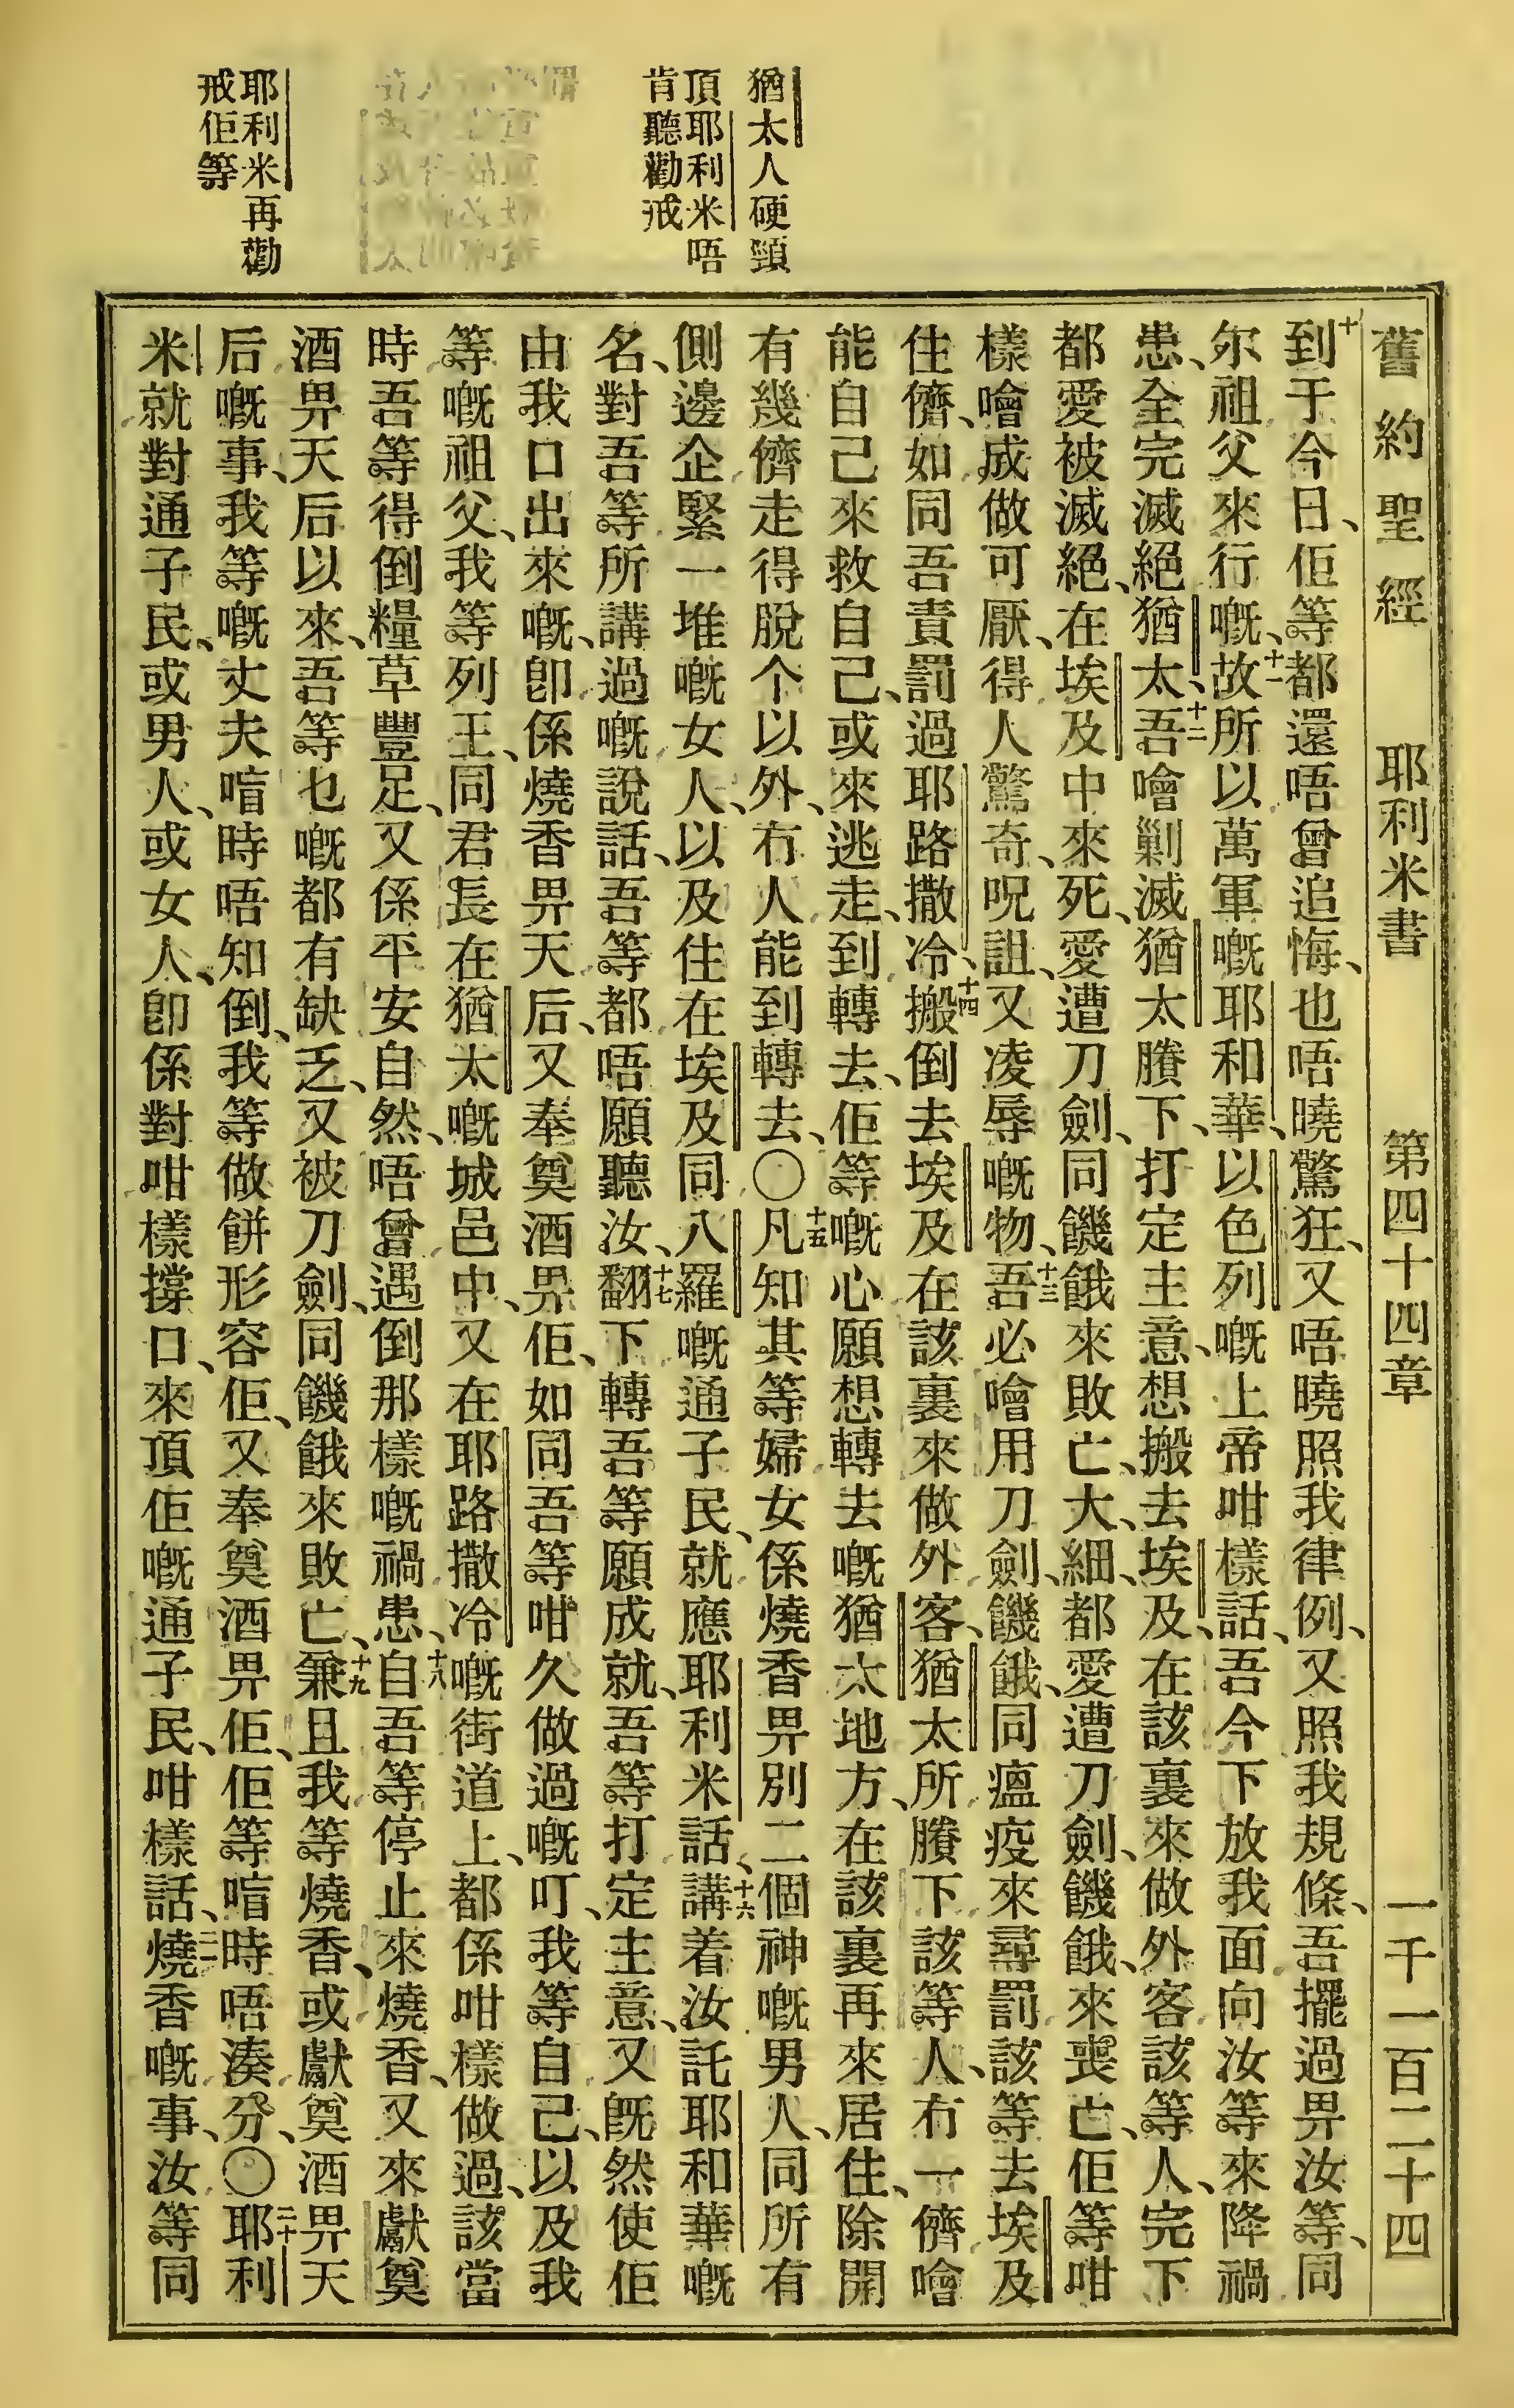 猶太人硬頸
頂耶利米唔
肯聽勸戒
耶利米再勸
戒佢等
舊約聖經 耶利米書 第四十四章 一千一百二十四
十到于今日、佢等都還唔曾追悔、也唔曉驚狂、又唔曉照我律例、又照我規條、吾擺過畀汝等、同
尔祖父來行嘅、十一故所以萬軍嘅耶和華、以色列嘅上帝咁樣話、吾今下放我面向汝等來降禍
患、全完滅絕猶太、十二吾噲剿滅猶太賸下、打定主意、想搬去埃及、在該裏來做外客該等人、完下
都愛被滅絕、在埃及中來死、愛遭刀劍、同饑餓來敗亡、大、細、都愛遭刀劍、饑餓、來喪亡、佢等咁
樣噲成做可厭、得人驚奇、呪詛、又凌辱嘅物、十三吾必噲用刀劍、饑餓、同瘟疫來尋罰該等去埃及
住儕、如同吾責罰過耶路撒冷、十四搬倒去埃及在該裏來做外客、猶太所賸下該等人、冇一儕噲
能自己來救自己、或來逃走、到轉去、佢等嘅心願想轉去嘅猶太地方、在該裏再來居住、除開
有幾儕走得脫个以外、冇人能到轉去、〇十五凡知其等婦女係燒香畀別二個神嘅男人、同所有
側邊企緊一堆嘅女人、以及住在埃及同八羅嘅通子民、就應耶利米話、十六講着汝託耶和華嘅
名、對吾等所講過嘅說話、吾等都唔願聽汝、十七翻下轉吾等願成就、吾等打定主意、又既然使佢
由我口出來嘅、卽係燒香畀天后、又奉奠酒畀佢、如同吾等咁久做過嘅叮、我等自己、以及我
等嘅祖父、我等列王、同君長在猶太嘅城邑中、又在耶路撒冷嘅街道上、都係咁樣做過、該當
時吾等得倒糧草豐足、又係平安自然、唔曾遇倒那樣嘅禍患、十八自吾等停止來燒香、又來獻奠
酒畀天后以來、吾等乜嘅都有缺乏、又被刀劍、同饑餓來敗亡、十九兼且我等燒香、或獻奠酒畀天
后嘅事、我等嘅丈夫喑時唔知倒、我等做餅形容佢、又奉奠酒畀佢、佢等喑時唔湊分、〇二十耶利
米就對通子民、或男人、或女人、卽係對咁樣撐口、來頂佢嘅通子民、咁樣話、二一燒香嘅事、汝等同